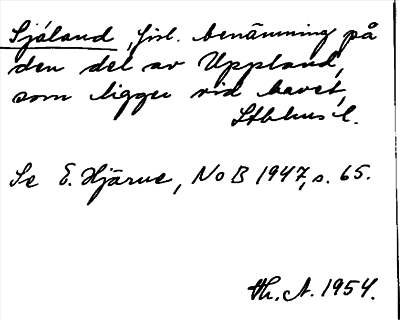 Sjáland, förl. benämning på
den del av Uppland,
som ligger vid havet,
Stblms l.
Se E. Hjärne, NoB 1947, s. 65.
Th. A. 1954.